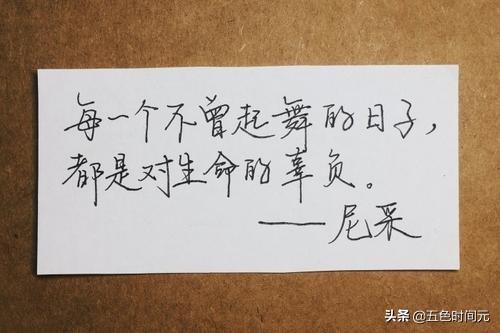 每一个不曾起舞的日子，
都是对生命的辜负。
——尼采
头条 @五色时间元